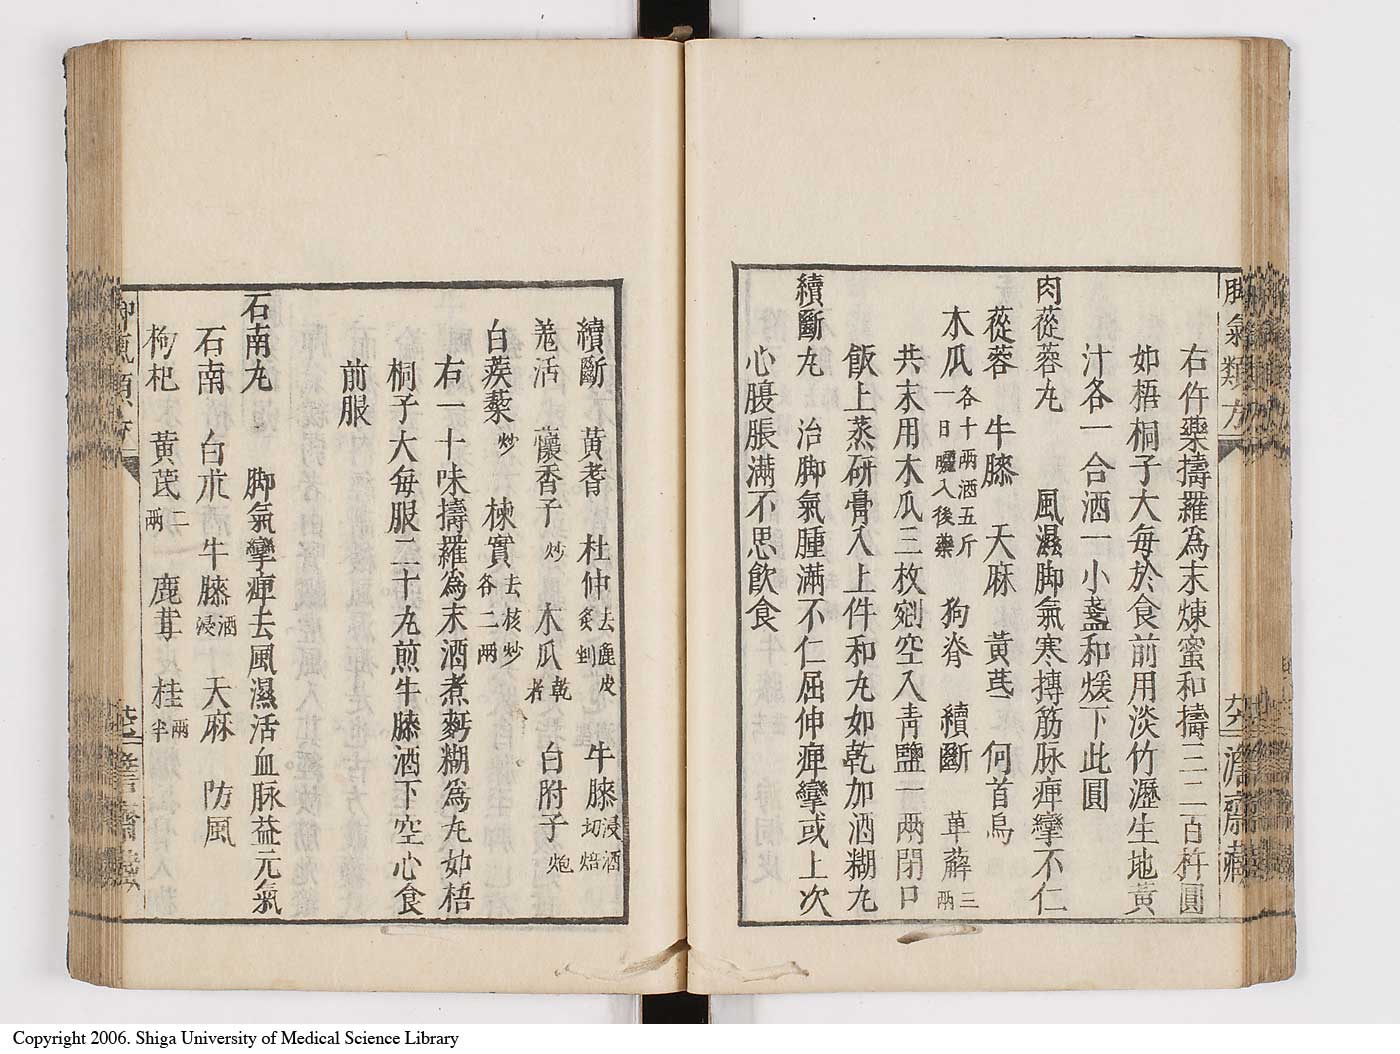 脚氣類方
右件藥擣羅為末煉蜜和擣三二百杵圓
如梧桐子大每於食前用淡竹瀝生地黃
汁各一合酒一小盞和煖下此圓
肉蓯蓉丸 風濕脚氣寒搏筋脉痺攣不仁
蓯蓉 牛膝 天麻 黃芪 何首烏
木瓜各十兩酒五斤一日曬入後藥 狗脊 續斷 萆薢三兩
共末用木瓜三枚剜空入靑鹽一兩閉口
飯上蒸研膏入上件和丸如乾加酒糊丸
續斷丸 治脚氣腫滿不仁屈伸痺攣或上次
心腹脹滿不思飲食
續斷 黃耆 杜仲去麁皮炙剉 牛膝浸酒切焙
羗活 蘹香子炒 木瓜乾者 白附子炮
白蒺藜炒 楝實去核炒各二兩
右一十味擣羅為末酒煮麪糊為丸如梧
桐子大每服二十丸煎牛膝酒下空心食
前服
石南丸 脚氣攣痺去風濕活血脉益元氣
石南 白朮 牛膝酒浸 天麻 防風
枸杞 黃芪二兩 鹿茸 桂兩半